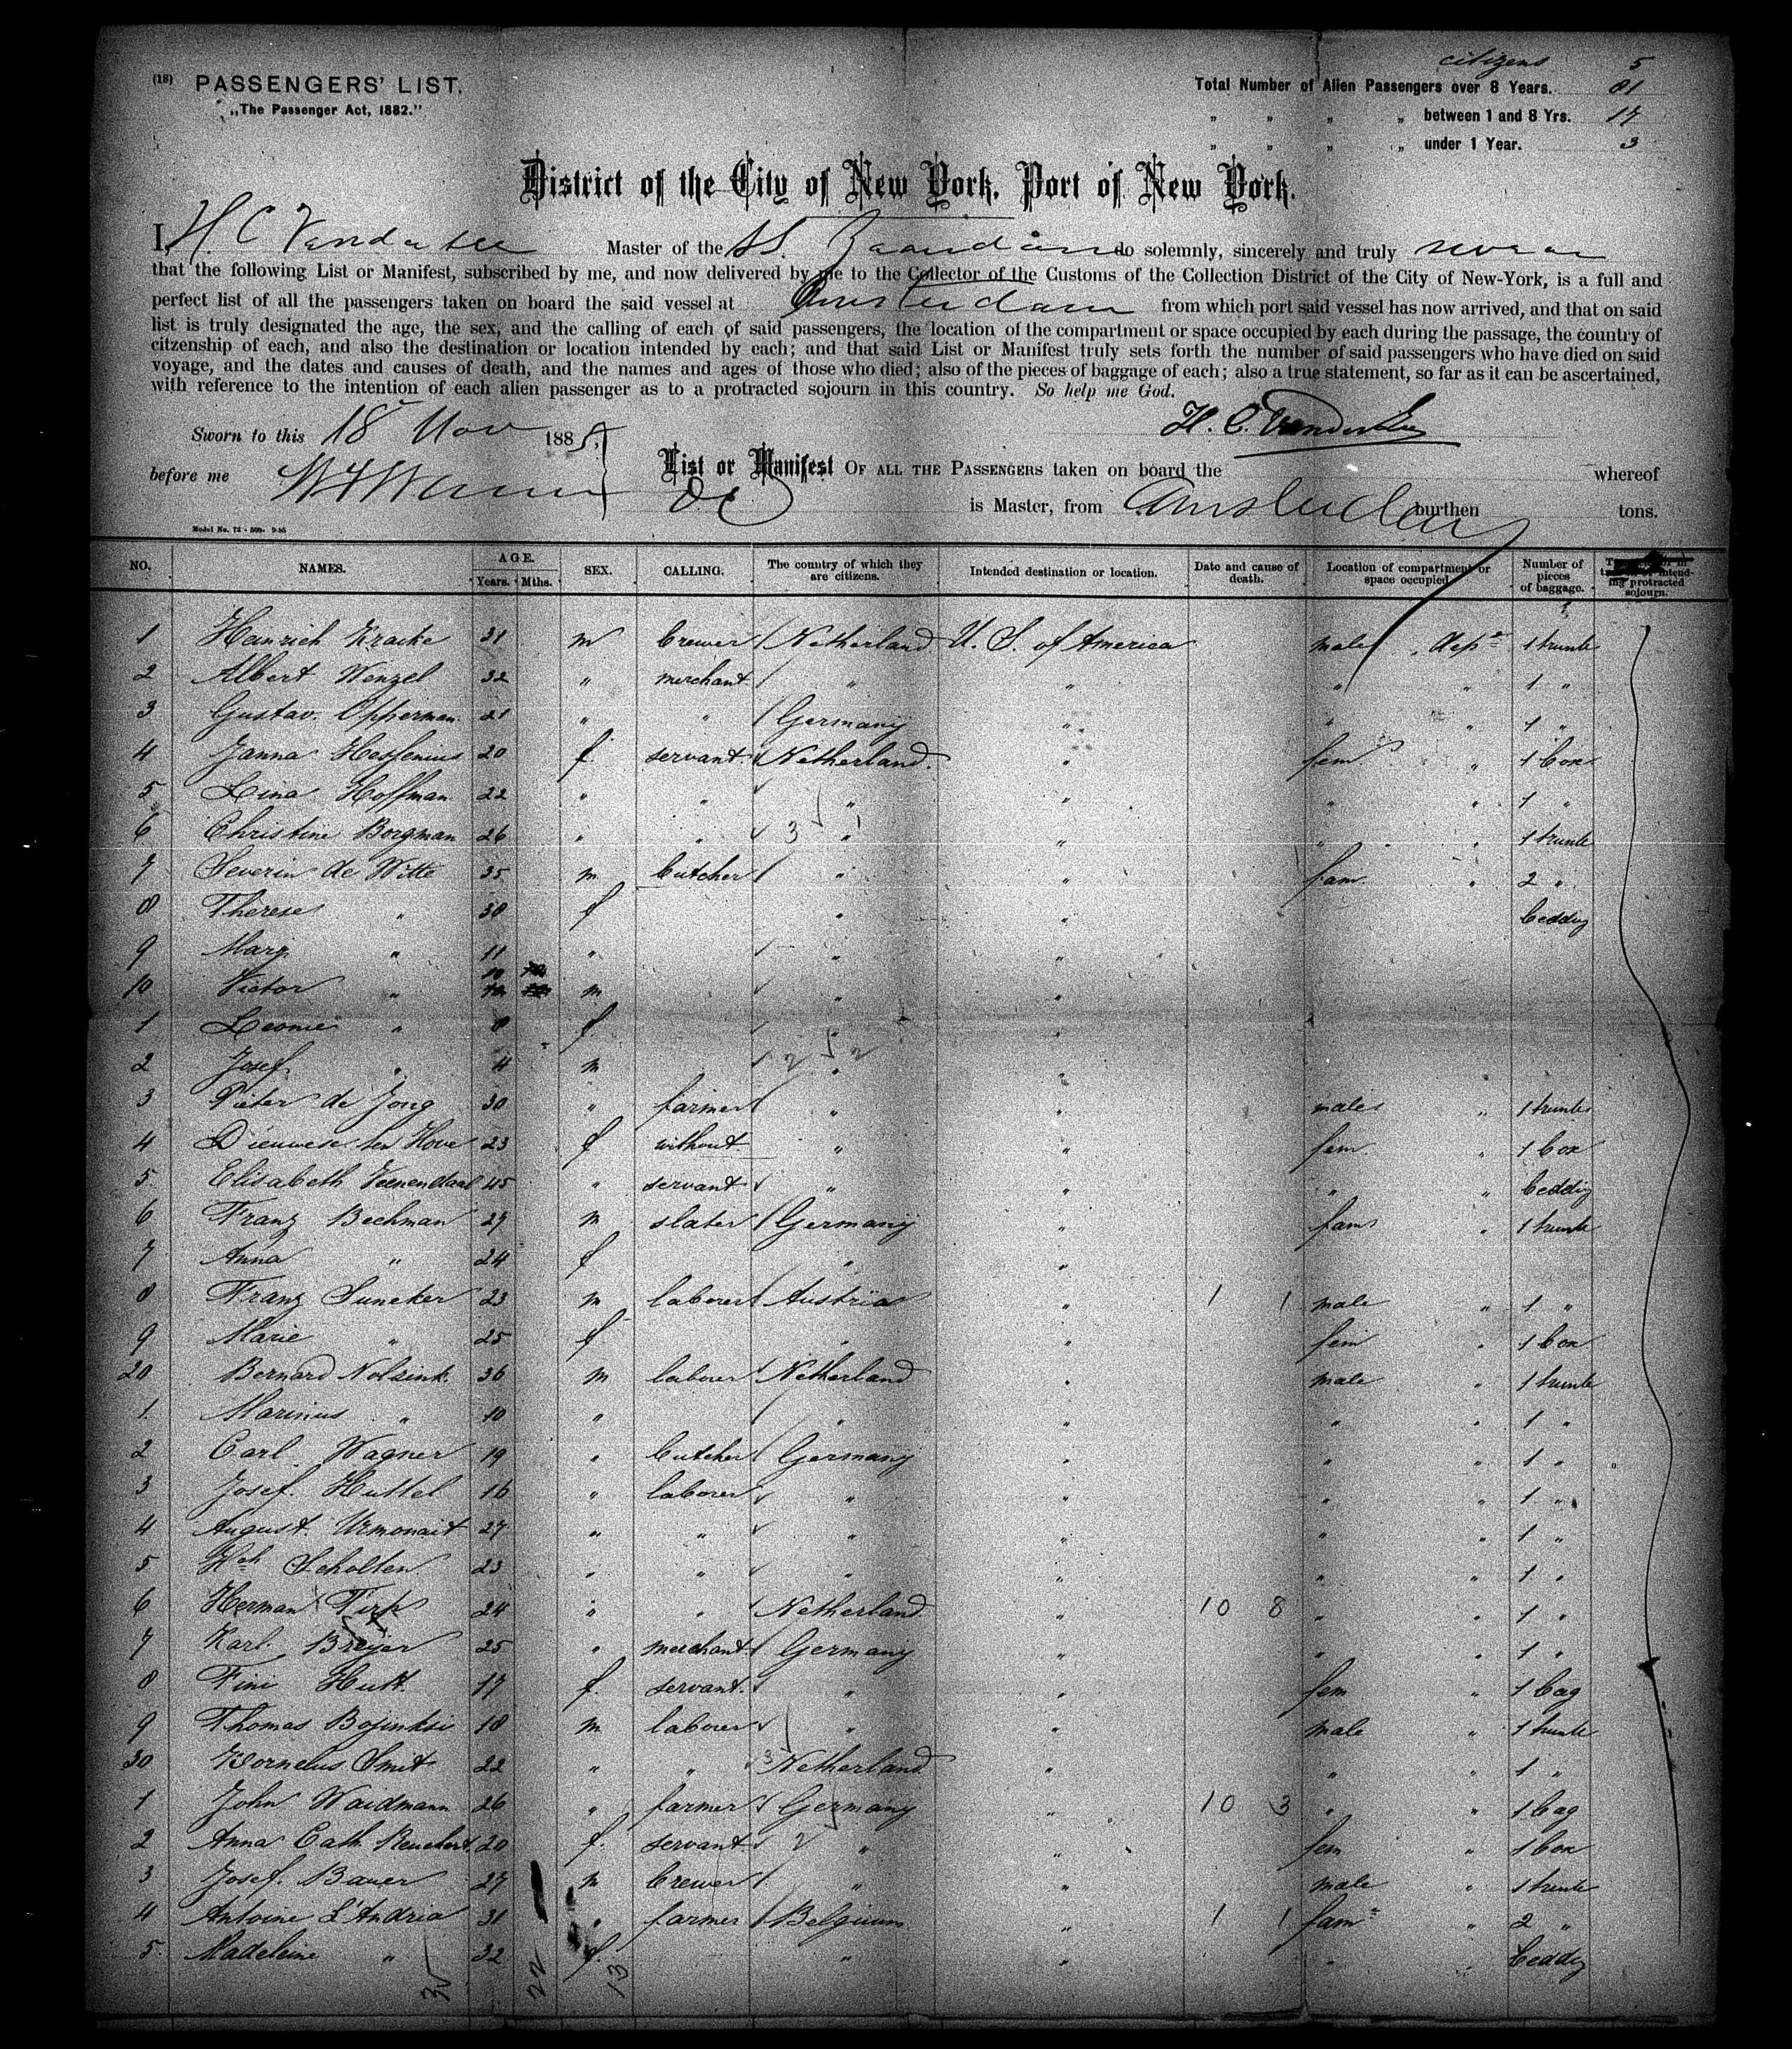 citizens 5
(18) PASSENGERS' LIST.
Total Number of Alien Passengers over 8 Years. 81
„The Passenger Act, 1882."
„ „ „ „ between 1 and 8 Yrs. 17
„ „ „ „ under 1 Year. 3
District of the City of New York, Port of New York.
I, H C Vanderzee Master of the SS. Zaandam do solemnly, sincerely and truly swear
that the following List or Manifest, subscribed by me, and now delivered by me to the Collector of the Customs of the Collection District of the City of New-York, is a full and
perfect list of all the passengers taken on board the said vessel at Amsterdam from which port said vessel has now arrived, and that on said
list is truly designated the age, the sex, and the calling of each of said passengers, the location of the compartment or space occupied by each during the passage, the country of
citzenship of each, and also the destination or location intended by each; and that said List or Manifest truly sets forth the number of said passengers who have died on said
voyage, and the dates and causes of death, and the names and ages of those who died; also of the pieces of baggage of each; also a true statement, so far as it can be ascertained,
with reference to the intention of each alien passenger as to a protracted sojourn in this country. So help me God.
H. C. Vanderzee
Sworn to this 18 Nov 1885,
List or Manifest OF ALL THE PASSENGERS taken on board the whereof
before me
is Master, from Amsterdam burthen tons.
Model No. 72 - 500- 9-85
NO. NAMES. AGE. Years. Mths. SEX. CALLING. The country of which they are citizens. Intended destination or location. Date and cause of death. Location of compartment or space occupied Number of pieces of baggage. intending protracted sojourn.
1 Heinrich Kracke 31 m brewer Netherland U. S. of America males Dept 1 trunk
2 Albert Wenzel 32 „ merchant „ „ „ „ 1 „
3 Gustav. Opperman 21 „ „ Germany „ „ „ 1 „
4 Janna Hessenius 20 f. servant Netherland. „ fem „ 1 box
5 Lina Hoffman 22 „ „ „ „ „ „ 1 „
6 Christine Borgman 26 „ „ 3 „ „ „ „ 1 trunk
7 Severin de Witte 35 m. butcher „ „ fam. „ 2 „
8 Therese „ 38 f „ „ bedding
9 Mary „ 11 „ „ „
10 Victor „ 10 m „ „
1 Leonie „ 8 f „ „
2 Josef „ 4 m 2 2 „ „
3 Pieter de Jong 30 „ farmer „ „ males „ 1 trunk
4 Dieuwese ten Hove 23 f without „ „ fem. „ 1 box
5 Elisabeth Veenendaal 45 „ servant „ „ „ „ bedding
6 Franz Bechman 27 m slater Germany „ fams „ 1 trunk
7 Anna „ 24 f „ „
8 Franz Suneker 23 m laborer Austria „ 1 1 male „ 1 „
9 Marie „ 25 f „ „ fem „ 1 box
20 Bernard Nolsink 36 m laborer Netherland „ male „ 1 trunk
1. Marinus „ 10 „ „ „ „ „ 1 „
2 Carl Wagner 19 „ butcher Germany „ „ „ 1 „
3 Josef. Huttel 16 „ laborer „ „ „ „ 1 „
4 August. Urmonait 27 „ „ „ „ „ „ 1 „
5 Hch Scholten 23 „ „ „ „ „ „ 1 „
6 Herman Tirp 24 „ „ Netherland „ 10 8 „ „ 1 „
7 Karl. Breyer 25 „ merchant Germany „ „ „ 1 „
8 Fini Hutt. 17 f. servant. „ „ fem „ 1 bag
9 Thomas Bojinksi 18 m laborer „ „ male „ 1 trunk
30 Kornelus Smit 22 „ „ 3 Netherland „ „ „ 1 „
1 John Waidmann 26 „ farmer Germany „ 10 3 „ „ 1 bag
2 Anna Cath Reuchert. 20 f. servant. 2 „ „ fem „ 1 box
3 Josef. Bauer 27 m brewer „ „ male „ 1 trunk
4 Antoine L'Andria 31 „ farmer Belgium „ 1 1 fam „ 2 „
5. Madeleine „ 32 f. „ „ „ „ bedding
35 22 13